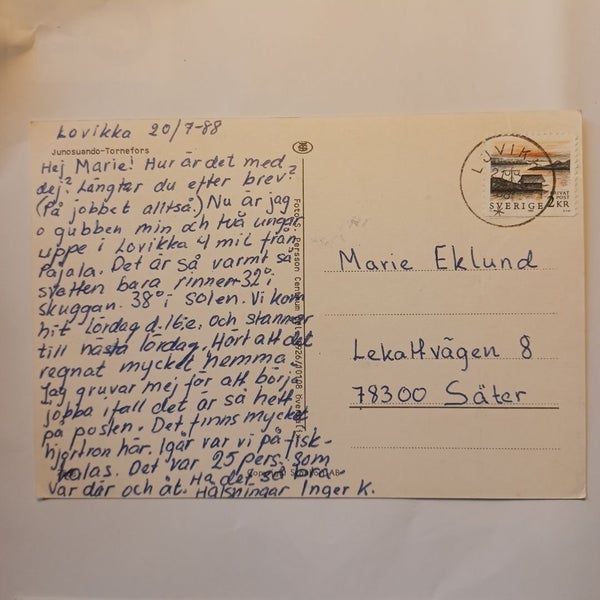 Lovikka 20/7-88
Junosuando-Tornefors
Hej Marie! Hur är det med
dej? Längtar du efter brev?
(På jobbet alltså.) Nu är jag
o gubben min och två ungar
uppe i Lovikka 4 mil från
Pajala. Det är så varmt så
svetten bara rinner 32° i
skuggan. 38° i solen. Vi kom
hit lördag d. 16:e. och stannar
till nästa lördag. Hört att det
regnat mycket hemma.
Jag gruvar mej för att börja
jobba ifall det är så hett
på posten. Det finns mycket
hjortron här. Igår var vi på fisk-
kalas. Det var 25 pers. som
var där och åt. Ha det så bra
Hälsningar Inger K.
Foto: G. Persson
LOVIKKA
PRIVAT
POST
SVERIGE 2 KR
Marie Eklund
Lekattvägen 8
78300 Säter